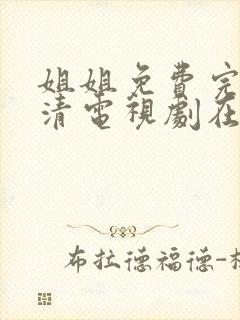 姐姐免費完
清電視劇在
布拉德福德-